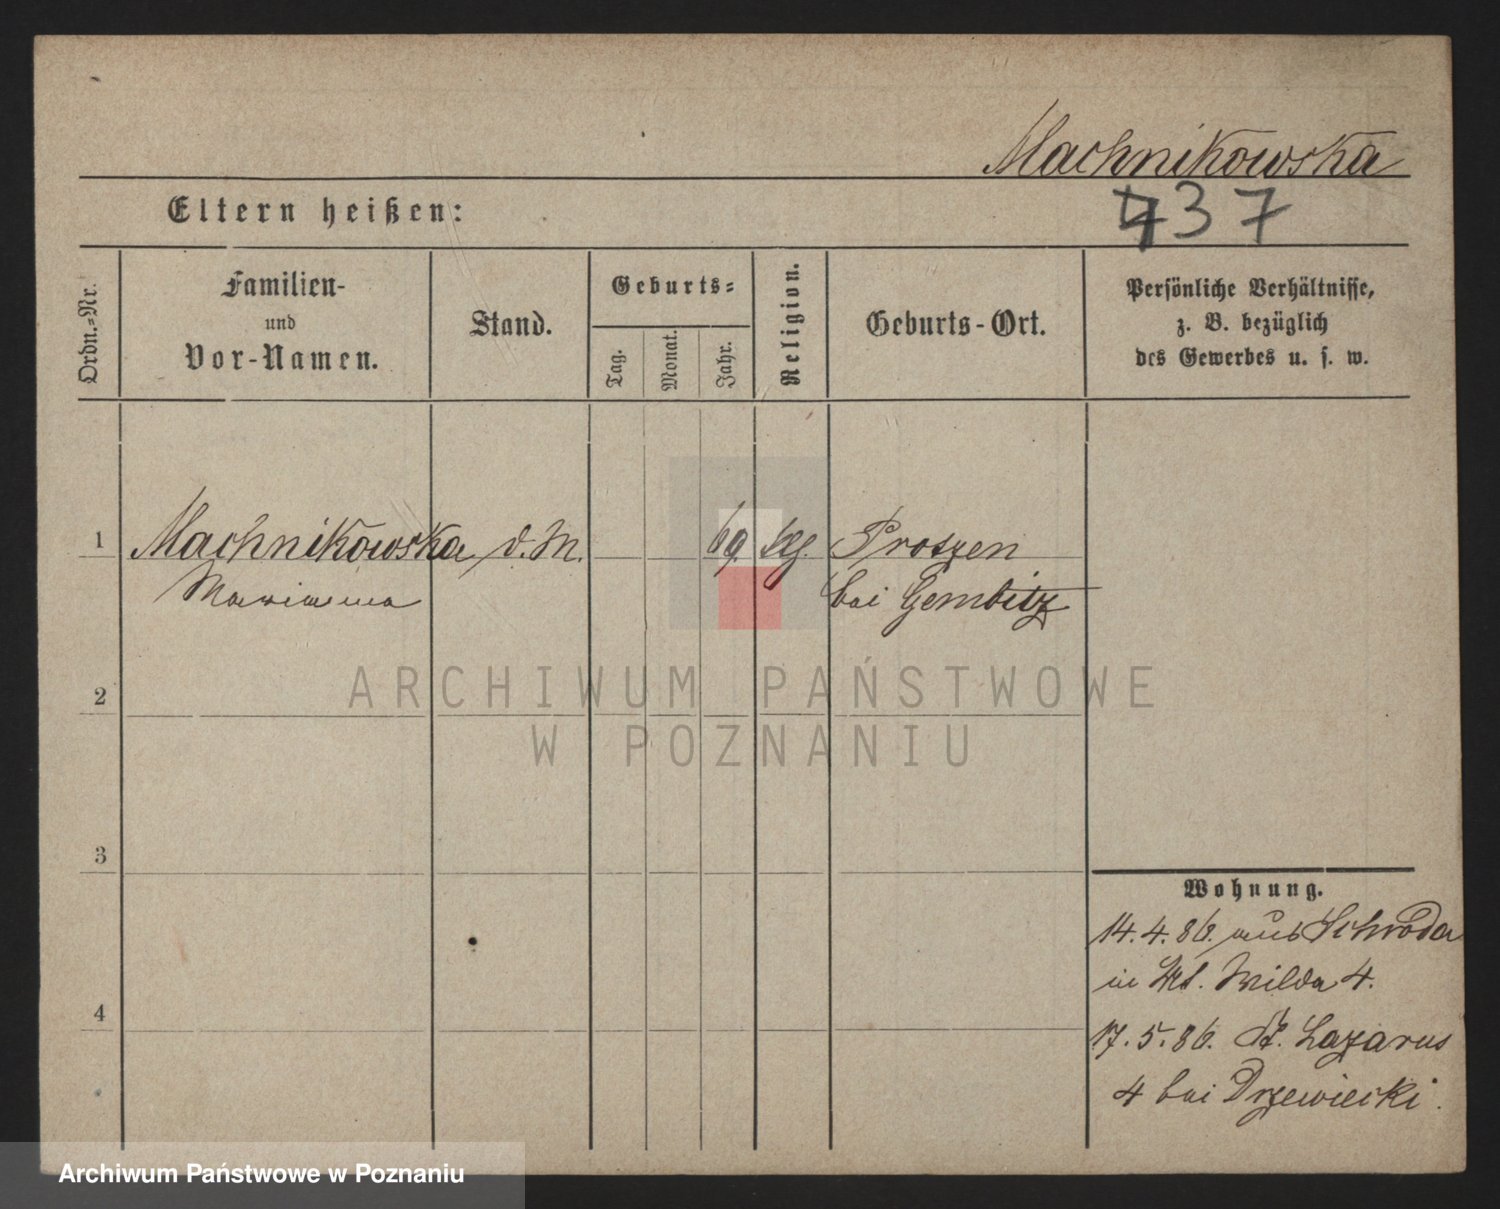 Machnikowska
Eltern heißen:
437
Ordn.-Nr.
Familien-
und
Vor-Namen.
Stand.
Geburts-
Tag.
Monat.
Jahr.
Religion.
Geburts-Ort.
Persönliche Verhältnisse,
z. B. bezüglich
des Gewerbes u. s. w.
1 Machnikowska d. M. 69. Proszen
Marianna bei Gembitz
2
ARCHIWUM PAŃSTWOWE
W POZNANIU
3
Wohnung.
14. 4. 86. aus Schroda
in Wilda 4.
4
17. 5. 86. St. Lazarus
4 bei Drzewiecki.
Archiwum Państwowe w Poznaniu